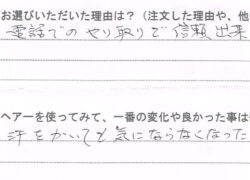 お選びいただいた理由は？（注文した理由や、他
電話でのやり取りで信頼出来
ヘアーを使ってみて、一番の変化や良かった事は
汗をかいても気にならなくなった